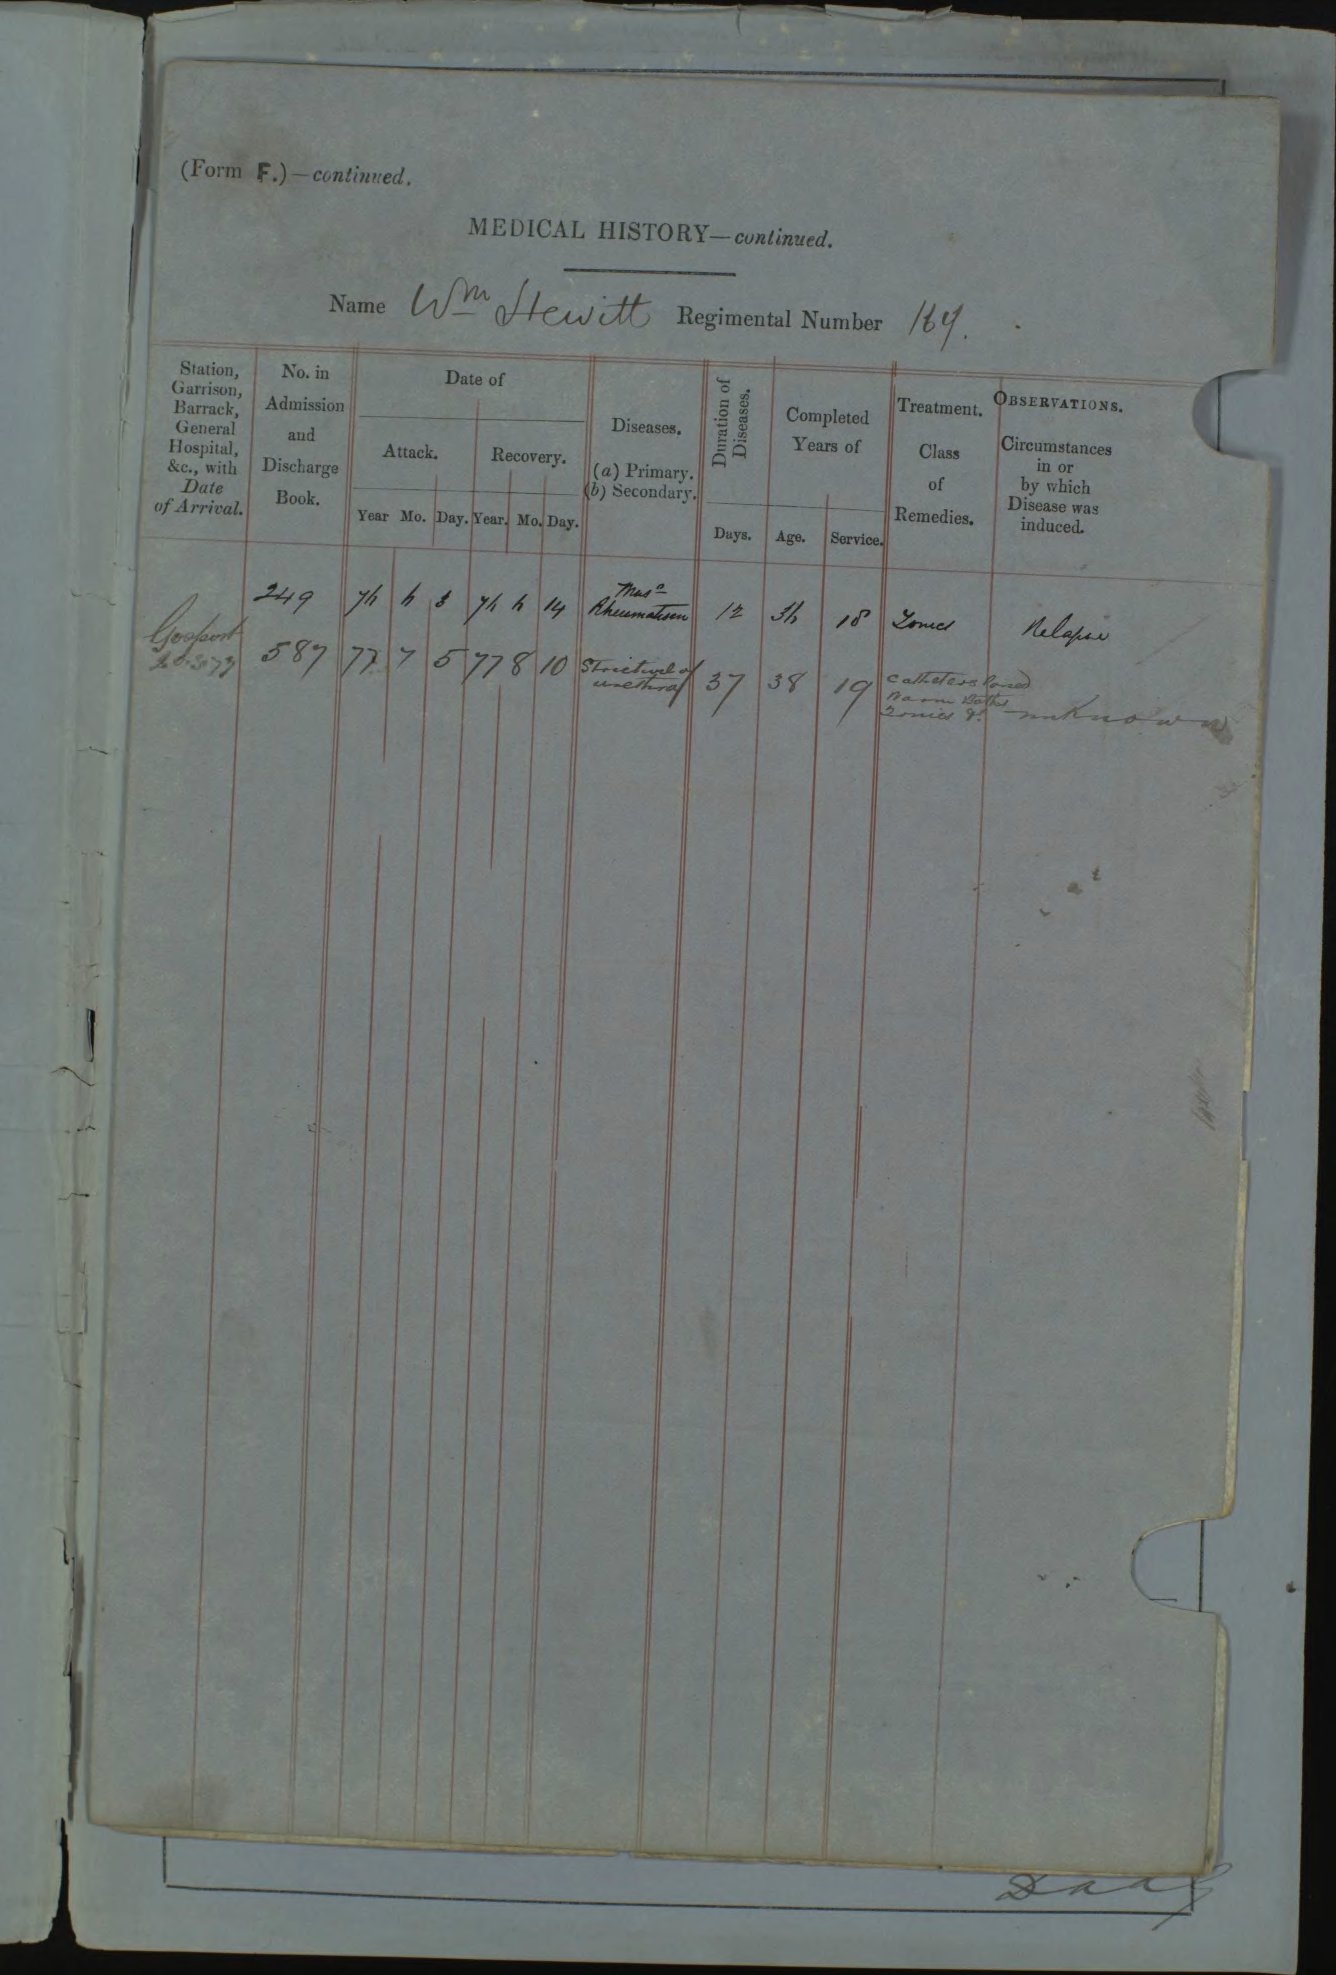 (Form F.)—continued.
MEDICAL HISTORY—continued.
Name Wm Hewitt Regimental Number 164.
Station, Garrison, Barrack, General Hospital, &c., with Date of Arrival.
No. in Admission and Discharge Book.
Date of
Attack.
Recovery.
Year Mo. Day. Year. Mo. Day.
Diseases.
(a) Primary.
(b) Secondary.
Duration of Diseases.
Days.
Completed Years of
Age. Service.
Treatment.
Class of Remedies.
OBSERVATIONS.
Circumstances in or by which Disease was induced.
249 14 Musr Rheumatism 12 18 Tonics Relapse
Gosport
587 77 7 5 77 8 10 Stricture of urethra 37 38 19 Catheters
Warm Baths
Tonics &c unknown